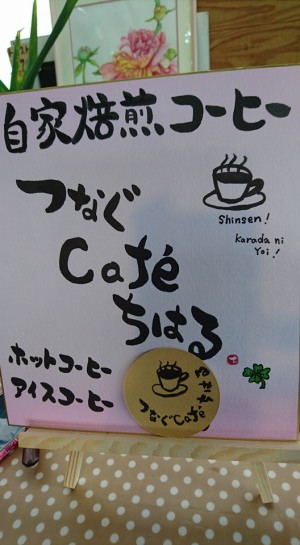 自家焙煎コーヒー
Shinsen!
Karada ni
Yoi!
つなぐ
Café
ちはる
ホットコーヒー
アイスコーヒー
つなぐCafé